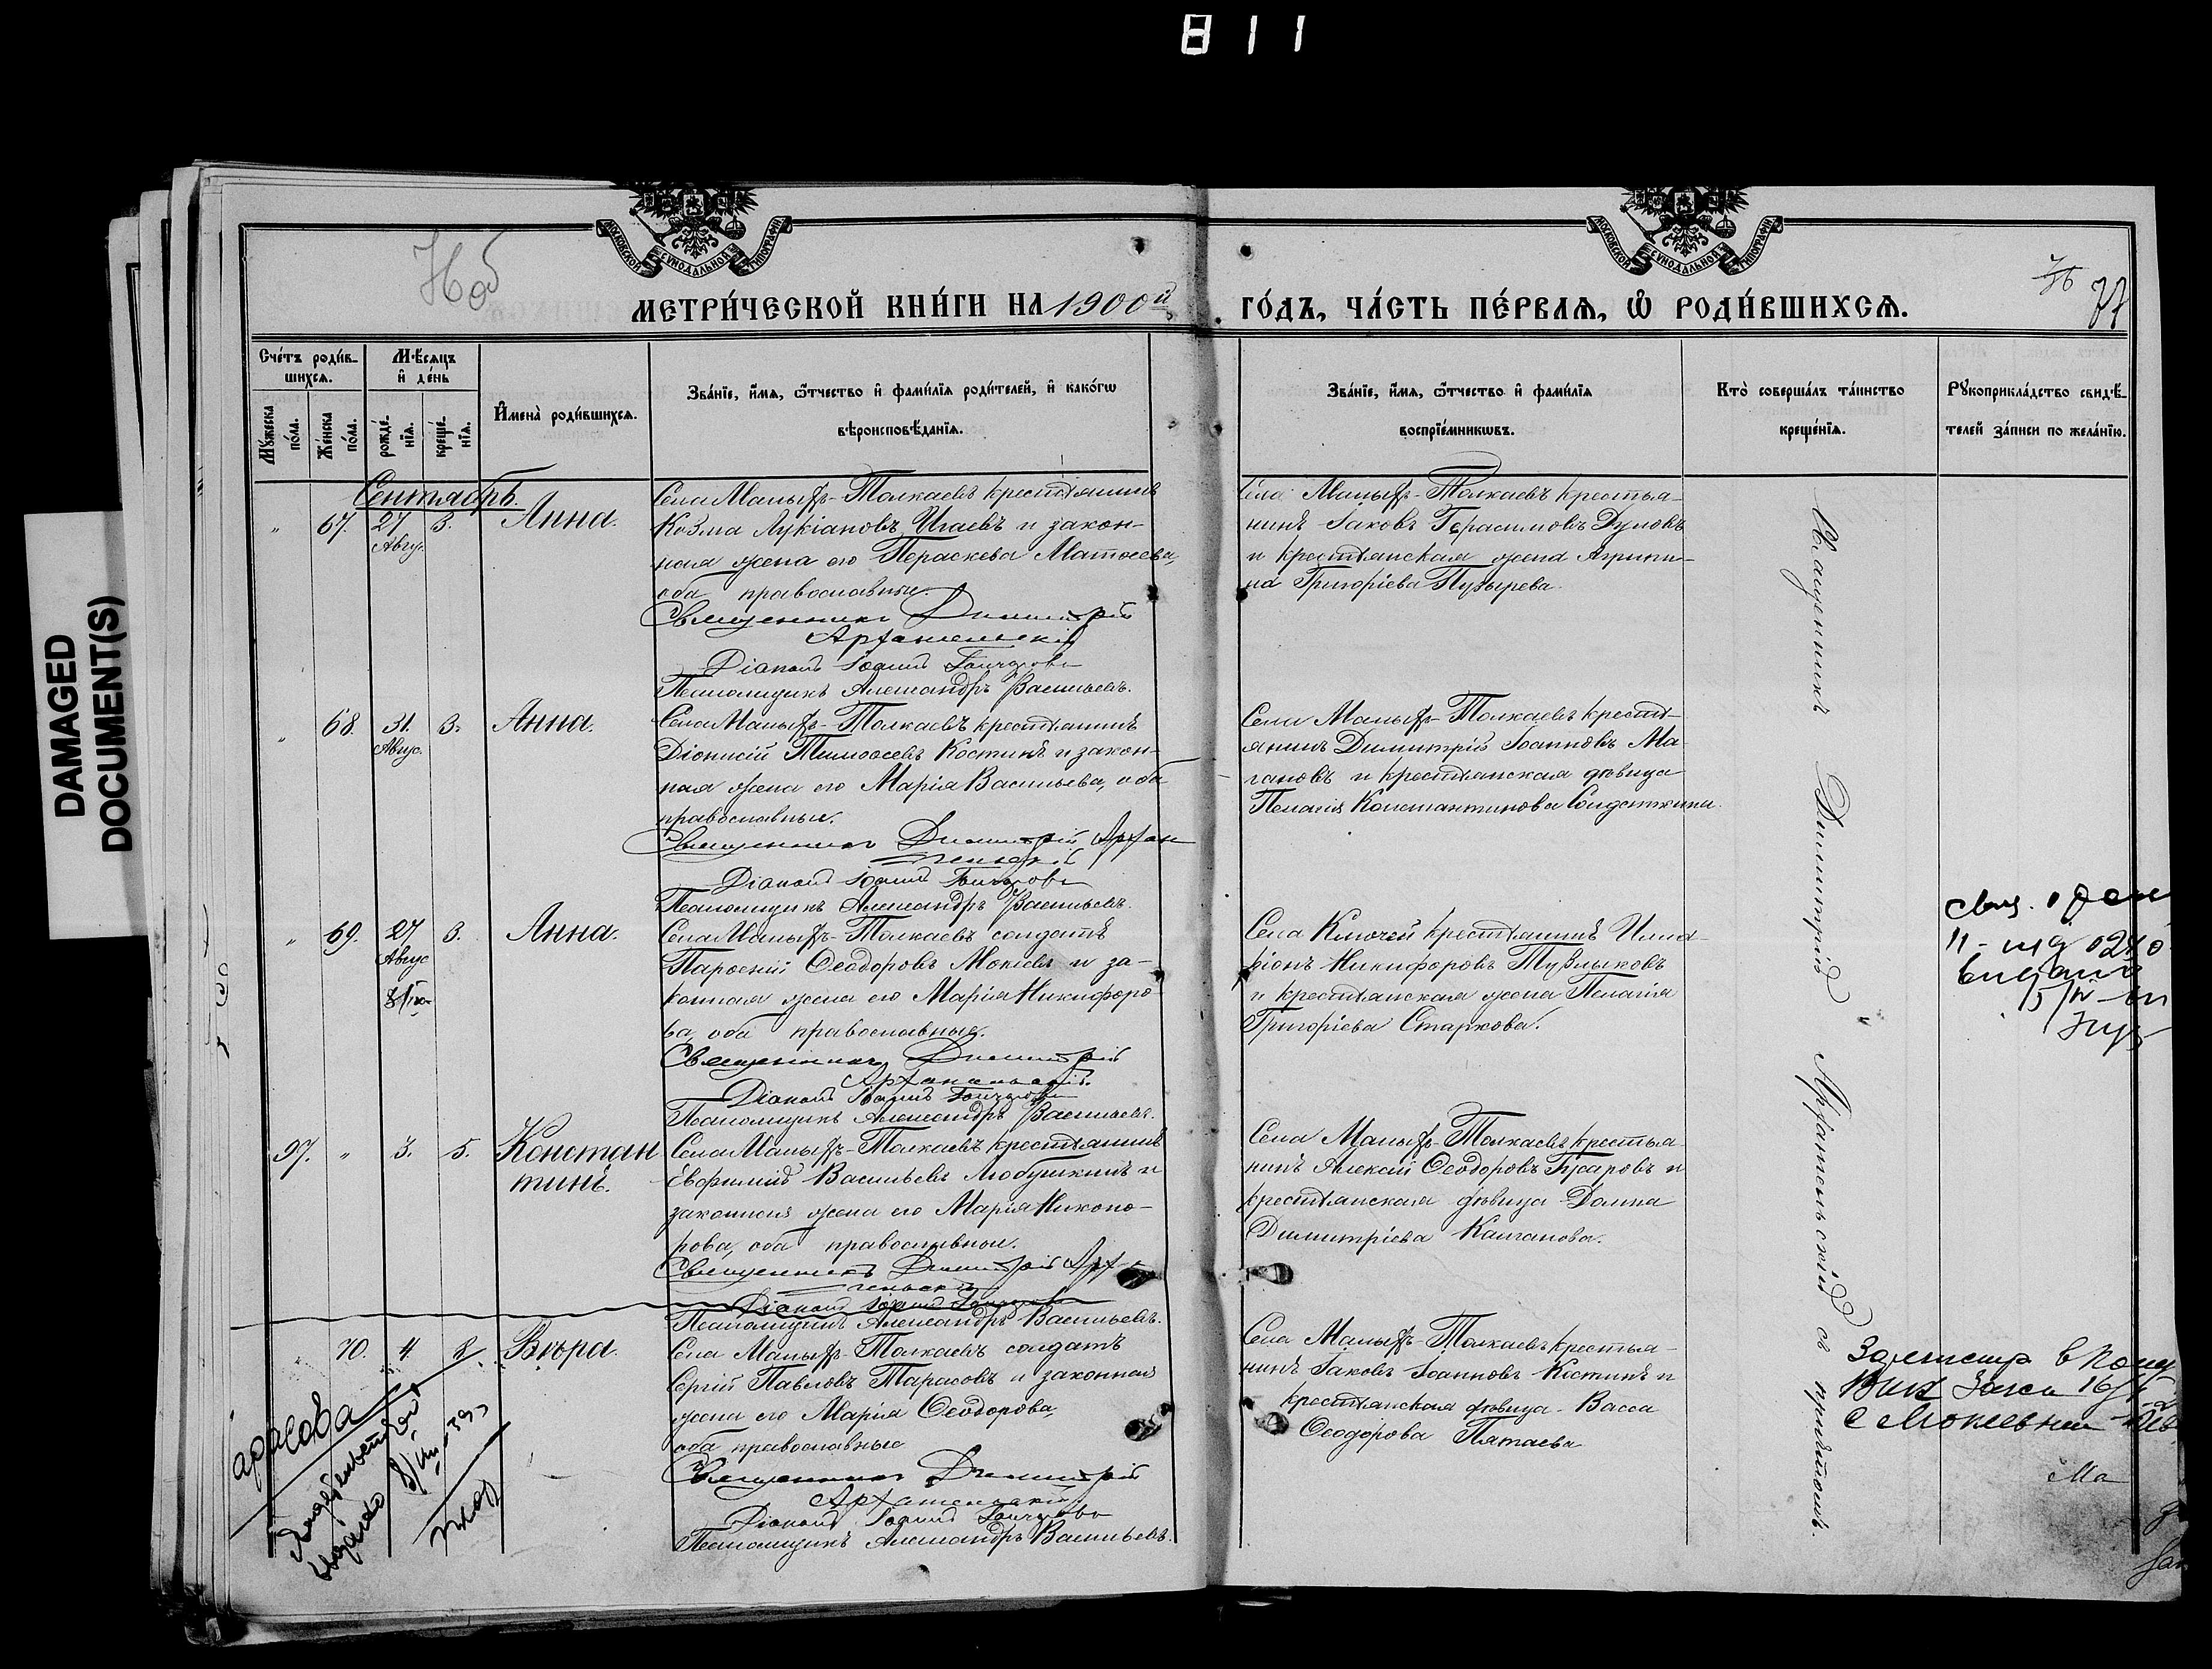 811
DAMAGED
DOCUMENT(S)
МОСКОВСКОЙ СѴНОДАЛЬНОЙ ТИПОГРАФІИ
МОСКОВСКОЙ СѴНОДАЛЬНОЙ ТИПОГРАФІИ
76 об
МЕТРИ́ЧЕСКОЙ КНИ́ГИ НА 1900й
ГО́ДЪ, ЧА́СТЬ ПЕ́РВАЯ, Ѡ҆ РОДИ́ВШИХСЯ.
76
77
Сче́тъ роди́в-
шихся.
Мѣ́сяцъ
и҆ де́нь
Му́жеска
по́ла.
Же́нска
по́ла.
рожде́-
нїя.
креще́-
нїя.
И҆мена̀ роди́вшихся.
Зва́нїе, и҆́мя, ѻ҆́тчество и҆ фами́лїя роди́телей, и҆ како́гѡ
вѣроисповѣ́данїя.
Зва́нїе, и҆́мя, ѻ҆́тчество и҆ фами́лїя
воспрїе́мникѡвъ.
Кто̀ соверша́лъ та́инство
креще́нїя.
Рꙋкоприкла́дство свидѣ́-
телей за́писи по жела́нїю.
Сентябрь.
" 67. 27 Авгус. 3. Анна.
Села Малыхъ-Толкаевъ крестьянинъ
Козма Лукіановъ Исаевъ и закон-
ная жена его Параскева Матѳеева,
оба православные.
Священникъ Димитрій
Архангельскій
Діаконъ Іоаннъ Гончаровъ
Псаломщикъ Александръ Васильевъ.
Села Малыхъ-Толкаевъ крестья-
нинъ Іаковъ Герасимовъ Дуловъ
и крестьянская жена Агрипи-
на Григоріева Пузырева.
" 68. 31. Авгус. 3. Анна.
Села Малыхъ-Толкаевъ крестьянинъ
Діонисій Тимоѳеевъ Костинъ и закон-
ная жена его Марія Васильева, оба
православные.
Священникъ Димитрій Архан
гельскій
Діаконъ Іоаннъ Гончаровъ
Псаломщикъ Александръ Васильевъ.
Села Малыхъ-Толкаевъ кресть-
янинъ Димитрій Іоанновъ Ма-
гановъ и крестьянская дѣвица
Пелагія Константинова Солдаткина.
" 69. 27 Авгус 3. Анна.
Села Малыхъ-Толкаевъ солдатъ
Парѳеній Ѳеодоровъ Мокѣевъ и за-
конная жена его Марія Никифоро-
ва, оба православные.
Священникъ Димитрій
Архангельскій.
Діаконъ Іоаннъ Гончаровъ
Псаломщикъ Александръ Васильевъ.
Села Ключей крестьянинъ Илла-
ріонъ Никифоровъ Тузлыковъ
и крестьянская жена Пелагія
Григоріева Старкова.
97. " 3. 5. Констан
тинъ.
Села Малыхъ-Толкаевъ крестьянинъ
Евфимій Васильевъ Любушкинъ и
законная жена его Марія Никоно-
рова, оба православные.
Священникъ Димитрій Арха
нгельскій
Діаконъ Іоаннъ Гончаровъ
Псаломщикъ Александръ Васильевъ.
Села Малыхъ-Толкаевъ крестья-
нинъ Алексій Ѳеодоровъ Гусаровъ и
крестьянская дѣвица Домна
Димитріева Калганова.
" 70. 4. 8. Вѣра.
Села Малыхъ-Толкаевъ солдатъ
Сергій Павловъ Тарасовъ и законная
жена его Марія Ѳеодорова,
оба православные
Священникъ Димитрій
Архангельскій
Діаконъ Іоаннъ Гончаровъ
Псаломщикъ Александръ Васильевъ.
Села Малыхъ-Толкаевъ крестья-
нинъ Іаковъ Іоанновъ Костинъ и
крестьянская дѣвица Васса
Ѳеодорова Пятаева
Священникъ Димитрій Архангельскій съ причтомъ.
Тарасова